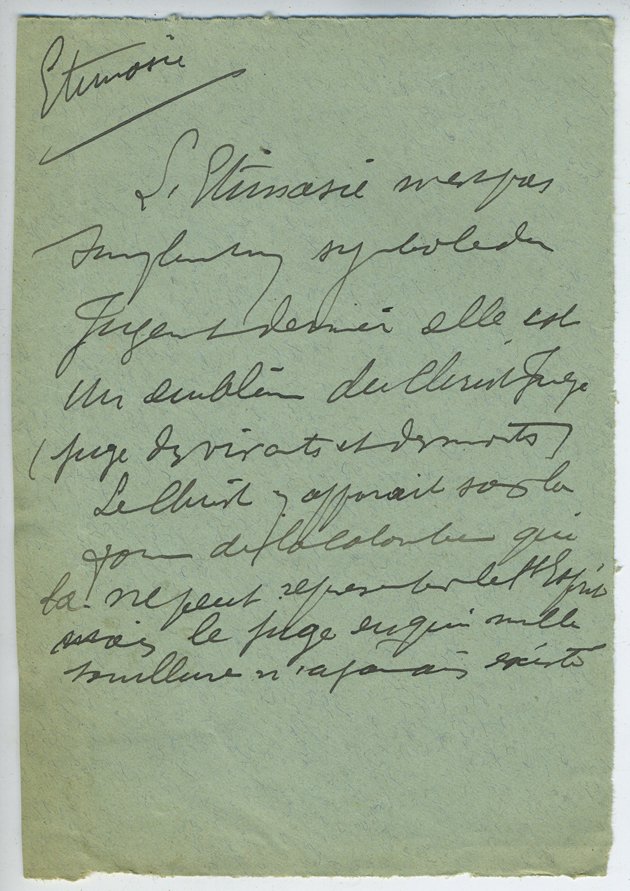 Etimasie
L'Etimasie n'est pas
simplement symbole du
Jugement dernier elle est
un emblème du Christ Juge
(juge des vivants et des morts)
Le Christ y apparait sous la
forme de la colombe qui
là ne peut representer le St Esprit
mais le juge en qui nulle
souillure n'a jamais existé